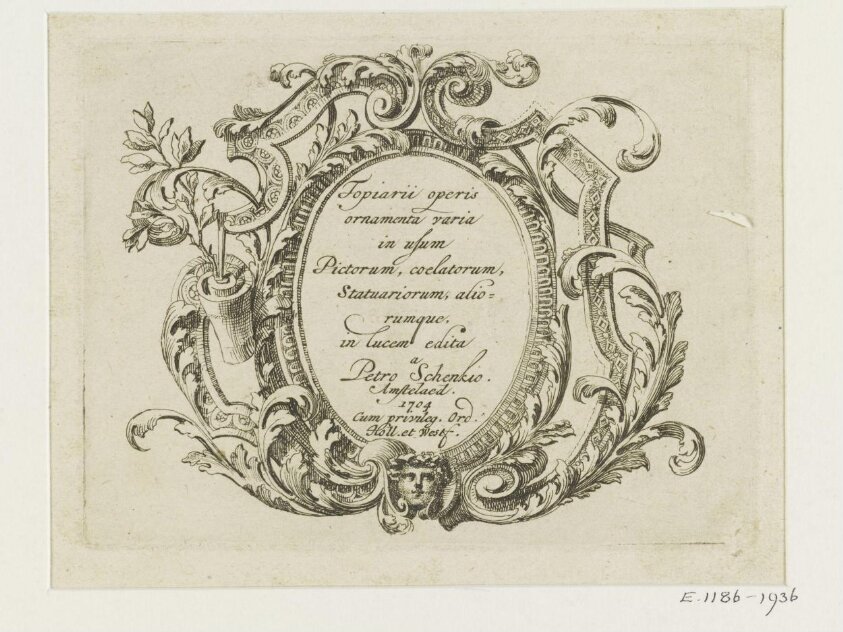 Topiarii operis
ornamenta varia
in uſum
Pictorum, coelatorum,
Statuariorum, alio-
rumque.
in lucem edita
a
Petro Schenkio.
Amſtelaed.
1704
Cum privileg. Ord.
Holl. et Westf.
E.1186-1936